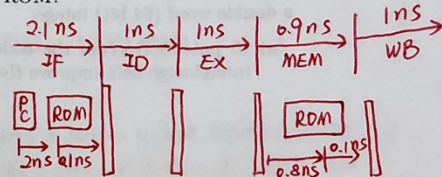 ROM?
2.1ns 1ns 1ns 0.9ns 1ns
IF ID EX MEM WB
PC ROM ROM
2ns 0.1ns 0.8ns 0.1ns